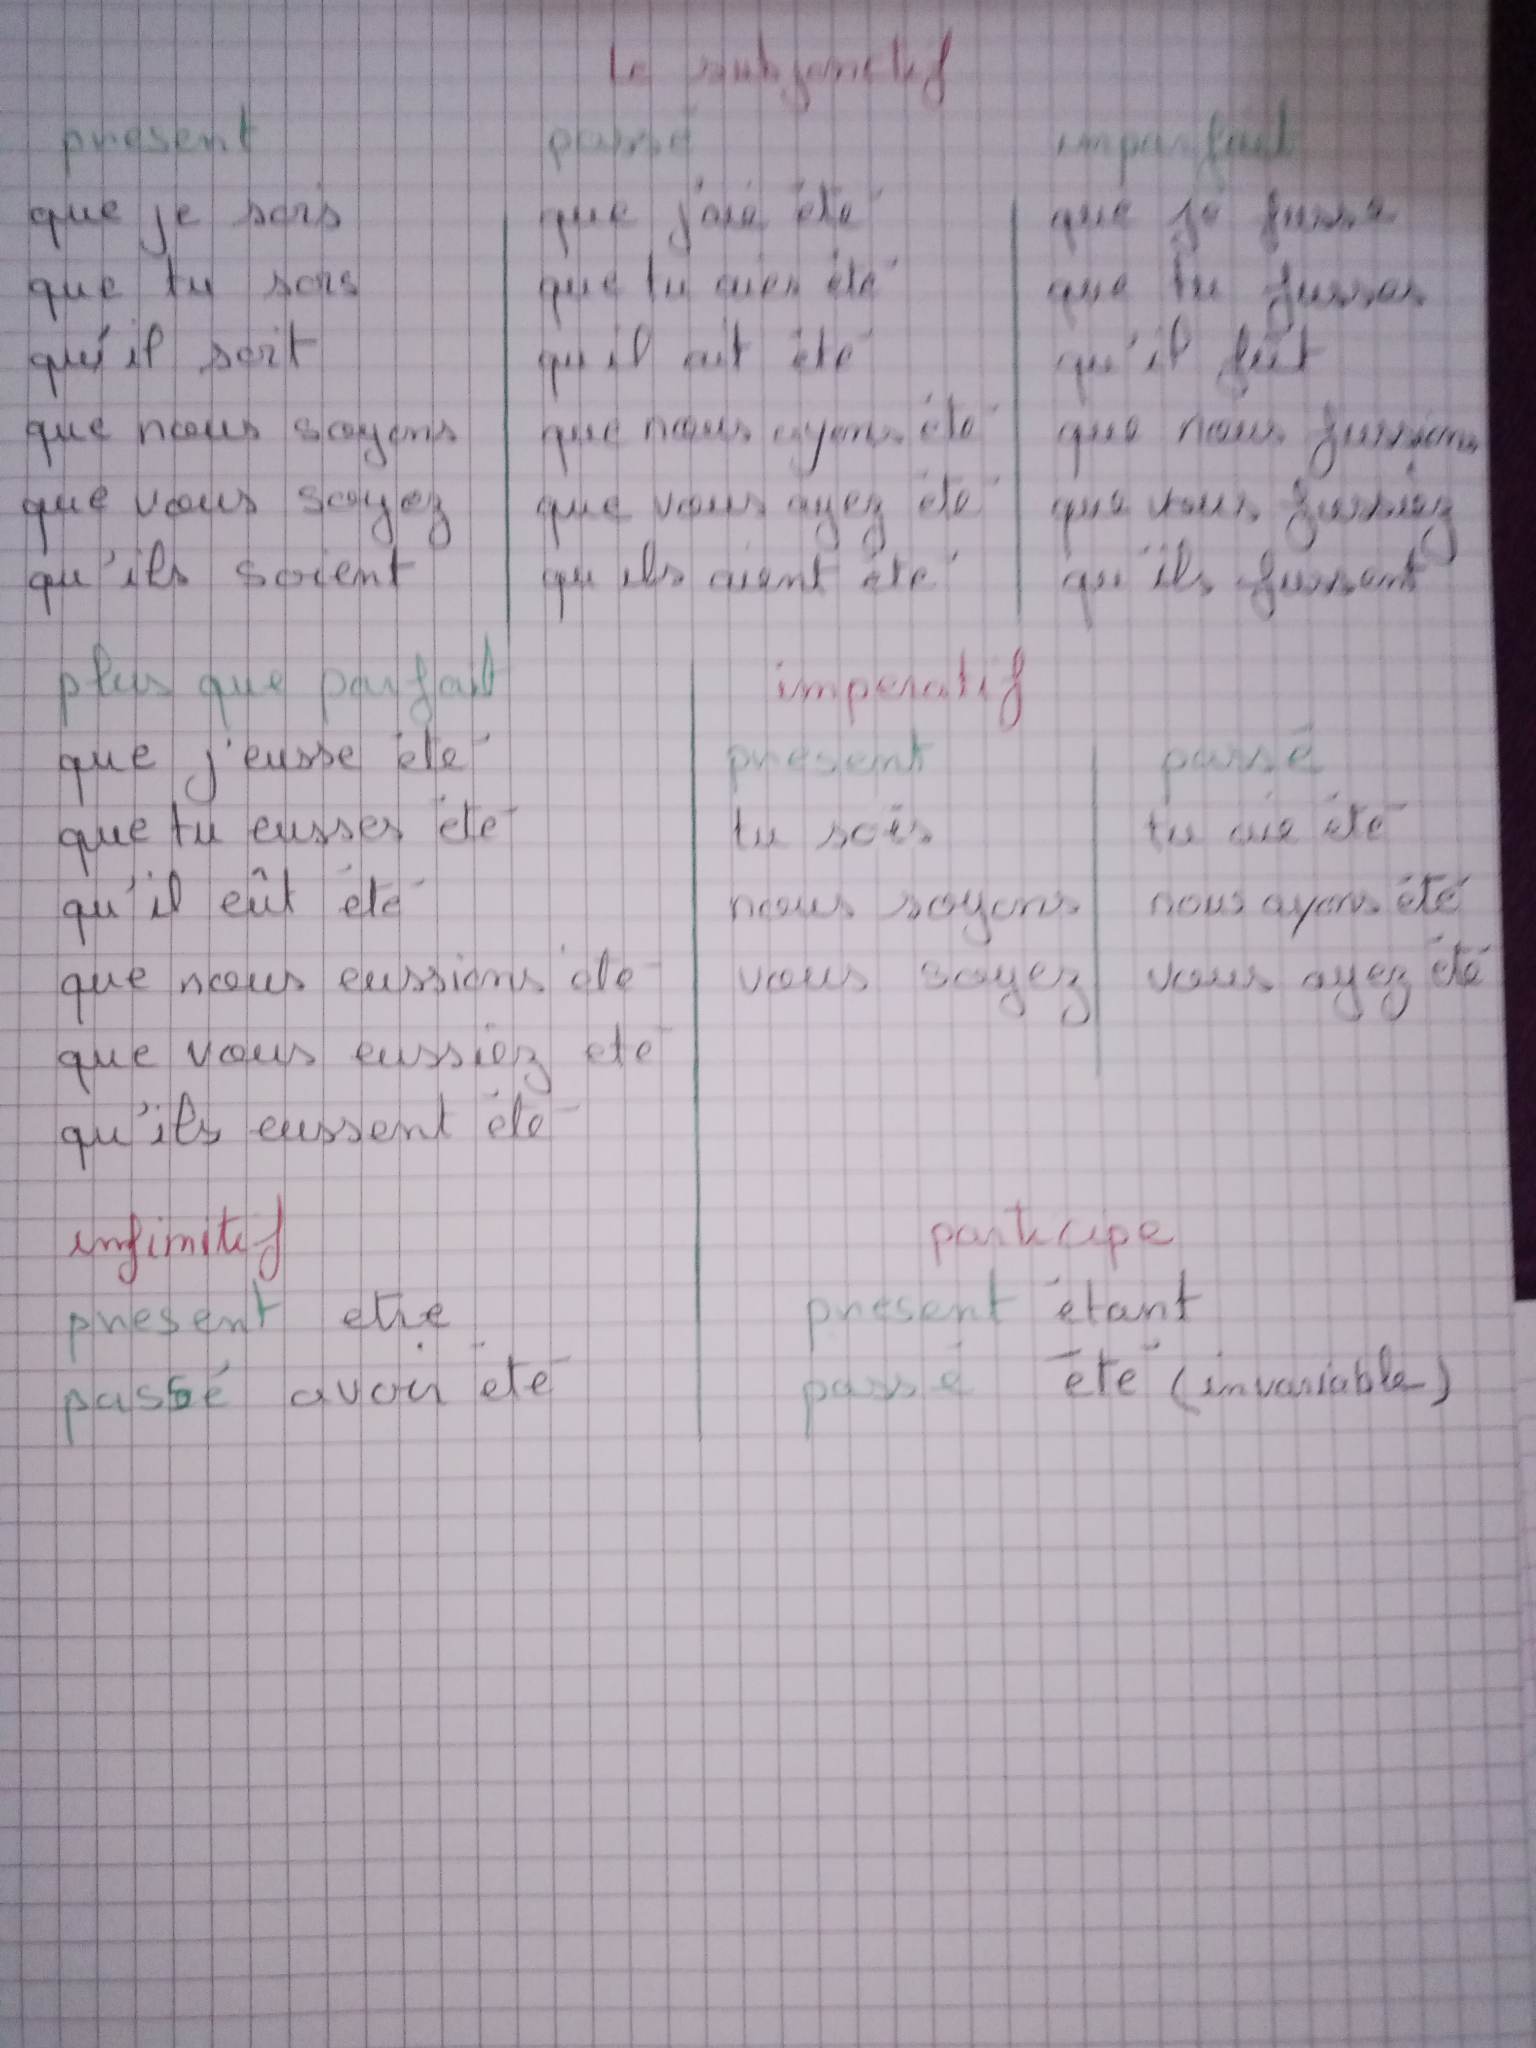 Le subjonctif
present passé imparfait
que je sois que j'aie été que je fusse
que tu sois que tu aies été que tu fusses
qu'il soit qu'il ait été qu'il fût
que nous soyons que nous ayons été que nous fussions
que vous soyez que vous ayez été que vous fussiez
qu'ils soient qu'ils aient été qu'ils fussent
plus que parfait imperatif
que j'eusse été present passé
que tu eusses été tu sois tu aie été
qu'il eût été nous soyons nous ayons été
que nous eussions été vous soyez vous ayez été
que vous eussiez eté
qu'ils eussent été
infinitif participe
present etre present étant
passé avoir été passé été (invariable)